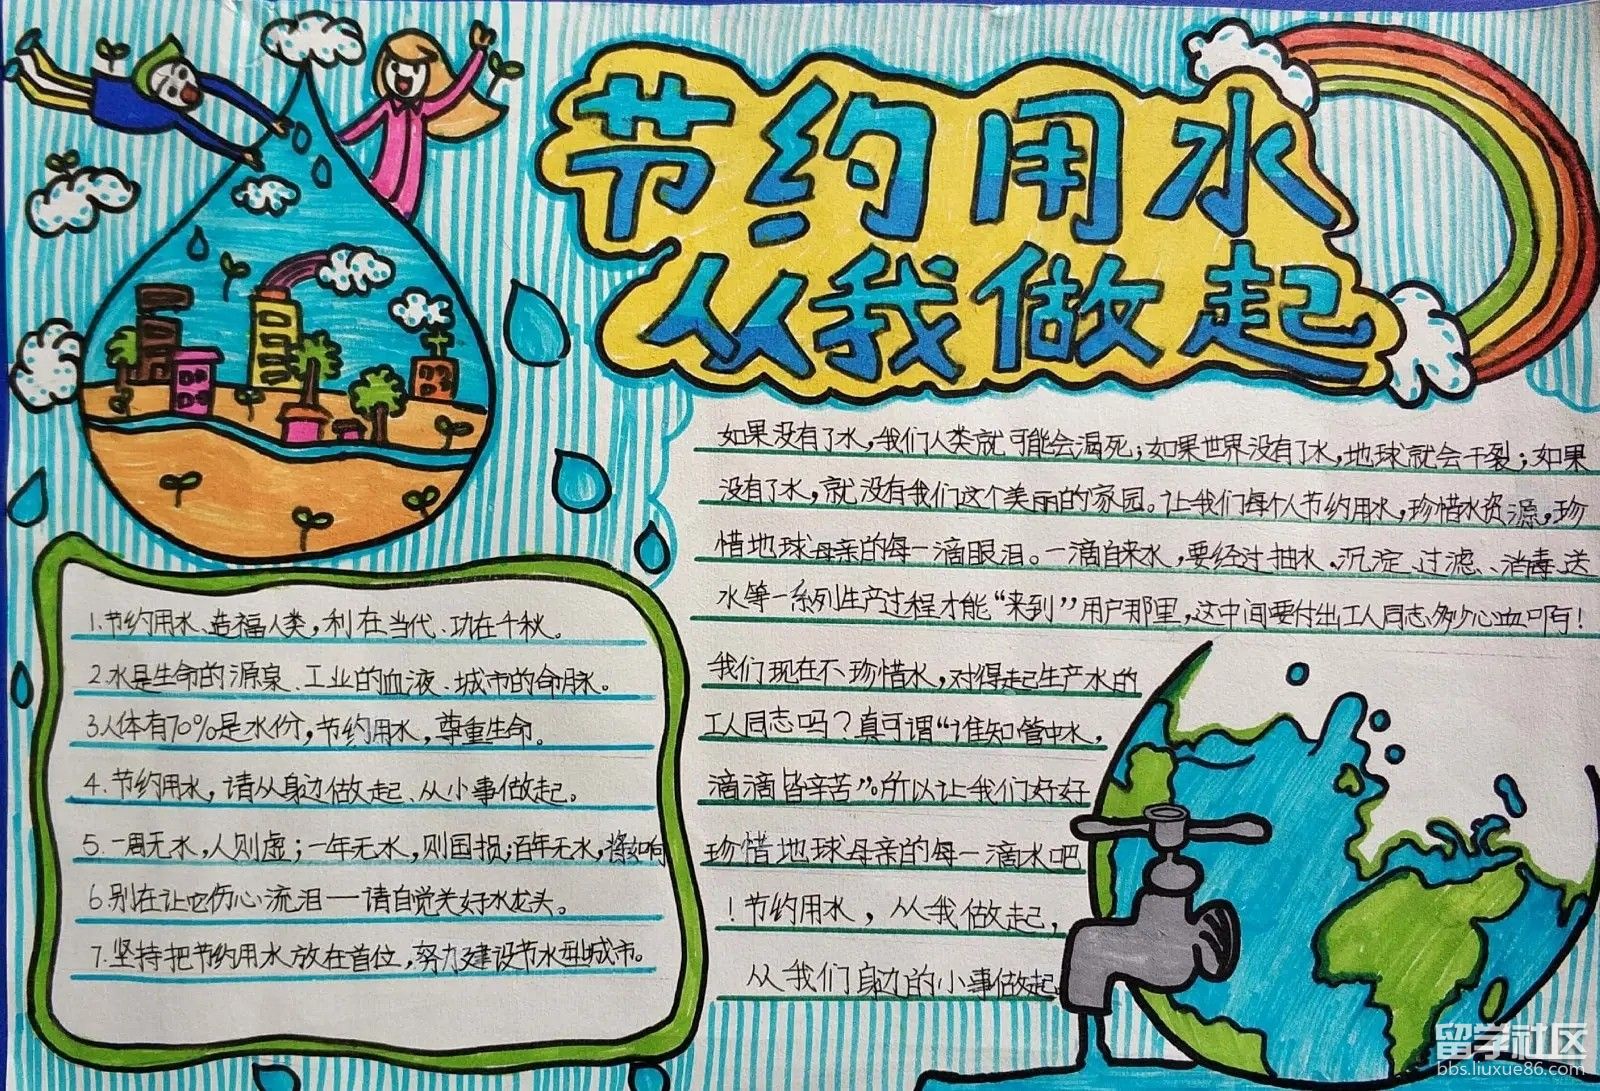 节约用水
从我做起
1.节约用水、造福人类，利在当代、功在千秋。
2.水是生命的源泉、工业的血液、城市的命脉。
3人体有70%是水份，节约用水，尊重生命。
4.节约用水，请从身边做起、从小事做起。
5.一周无水，人则虚；一年无水，则国损；百年无水，将如何
6.别在让它伤心流泪——请自觉关好水龙头。
7.坚持把节约用水放在首位，努力建设节水型城市。
如果没有了水，我们人类就可能会渴死；如果世界没有了水，地球就会干裂；如果
没有了水，就没有我们这个美丽的家园。让我们每个人节约用水，珍惜水资源，珍
惜地球母亲的每一滴眼泪。一滴自来水，要经过抽水、沉淀、过滤、消毒、送
水等一系列生产过程才能“来到”用户那里，这中间要付出工人同志多少心血啊！
我们现在不珍惜水，对得起生产水的
工人同志吗？真可谓“谁知管中水，
滴滴皆辛苦”。所以让我们好好
珍惜地球母亲的每一滴水吧
！节约用水，从我做起，
从我们身边的小事做起。
留学社区
bbs.liuxue86.com